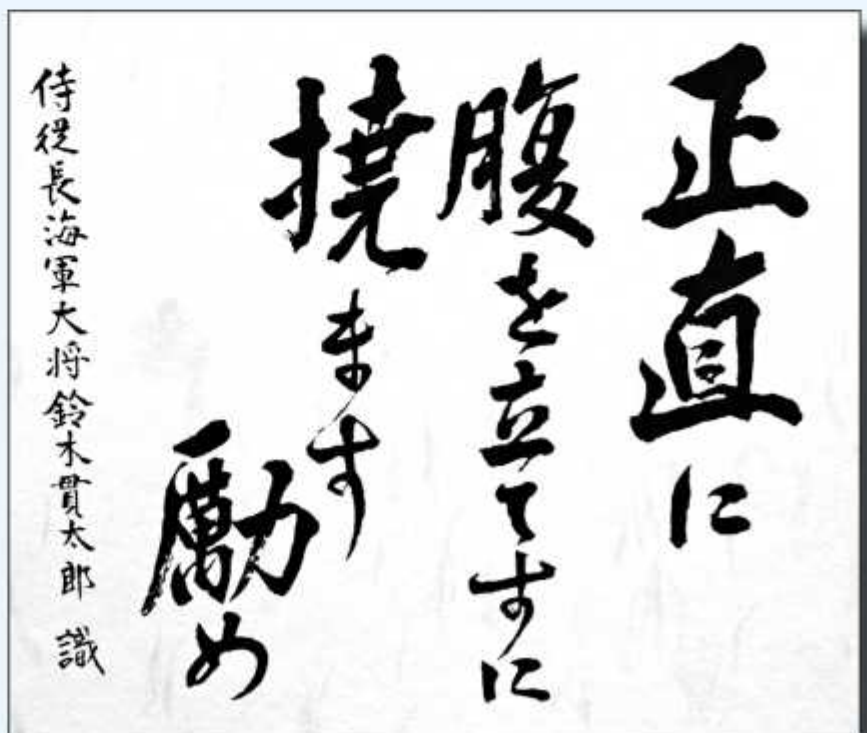 正直に
腹を立てすに
撓ます
励め
侍従長海軍大将鈴木貫太郎 識